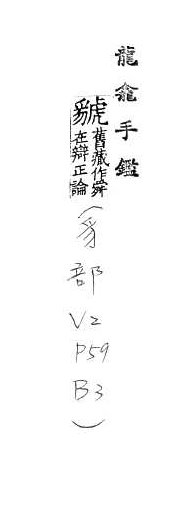 龍龕手鑑
舊藏作舜
在辯正論
(豸部 V2 P59 B3)